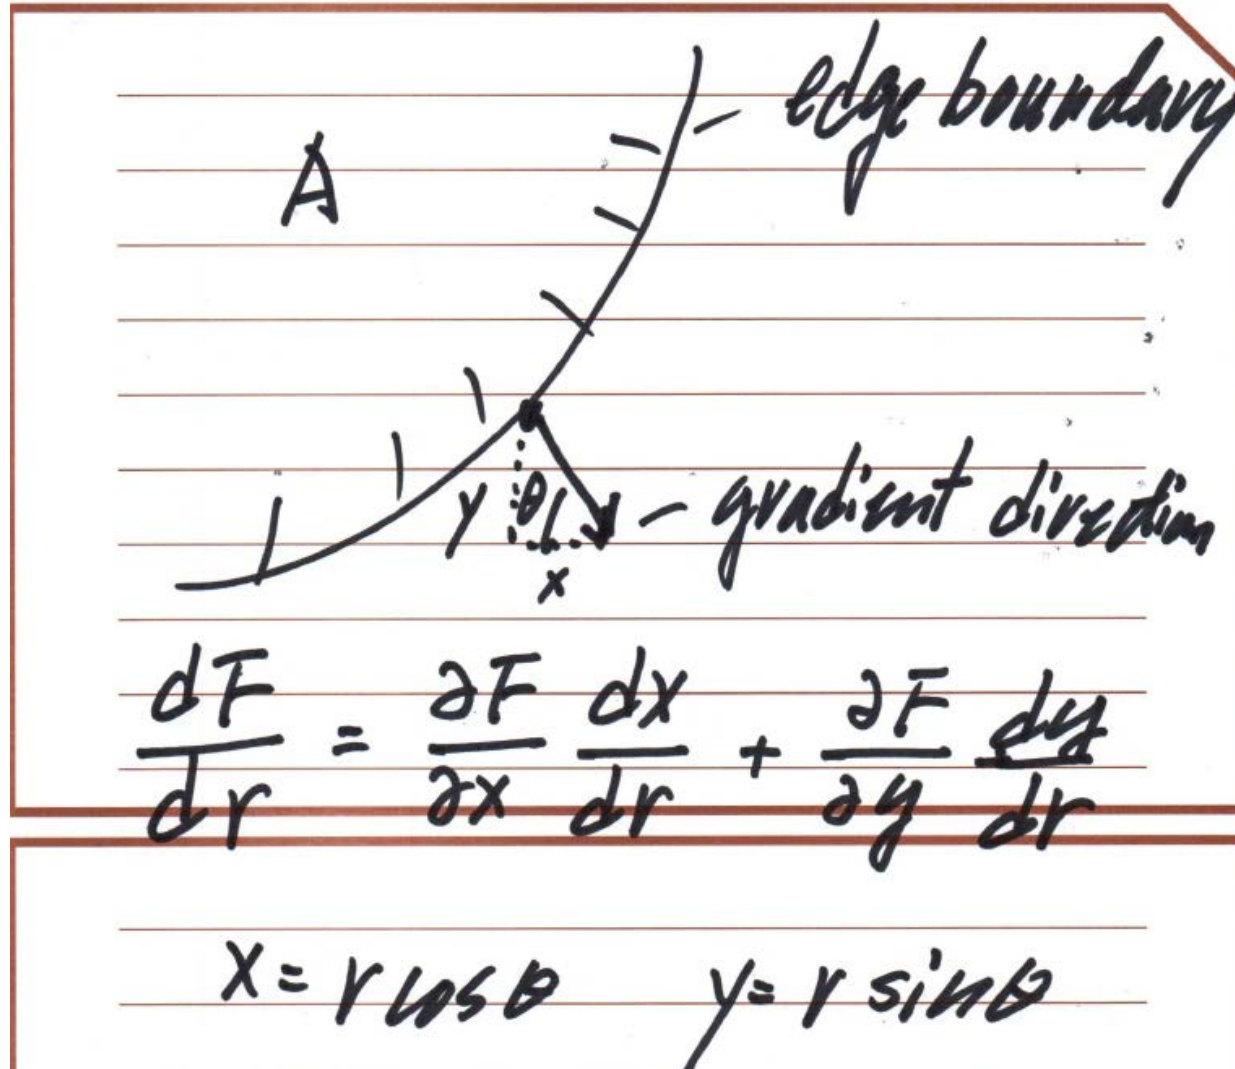 edge boundary
A
y θ
gradient direction
x
dF/dr = ∂F/∂x dx/dr + ∂F/∂y dy/dr
x = r cosθ y = r sinθ